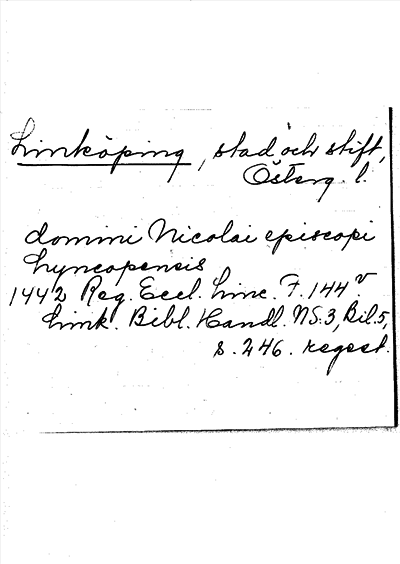 Linköping, stad och stift,
Österg. l.
domini Nicolai episcopi
Lyncopensis
1442 Reg. Eccl. Linc. F. 144 v
Link. Bibl. Handl. NS. 3, Bil. 5,
s. 246. regest.